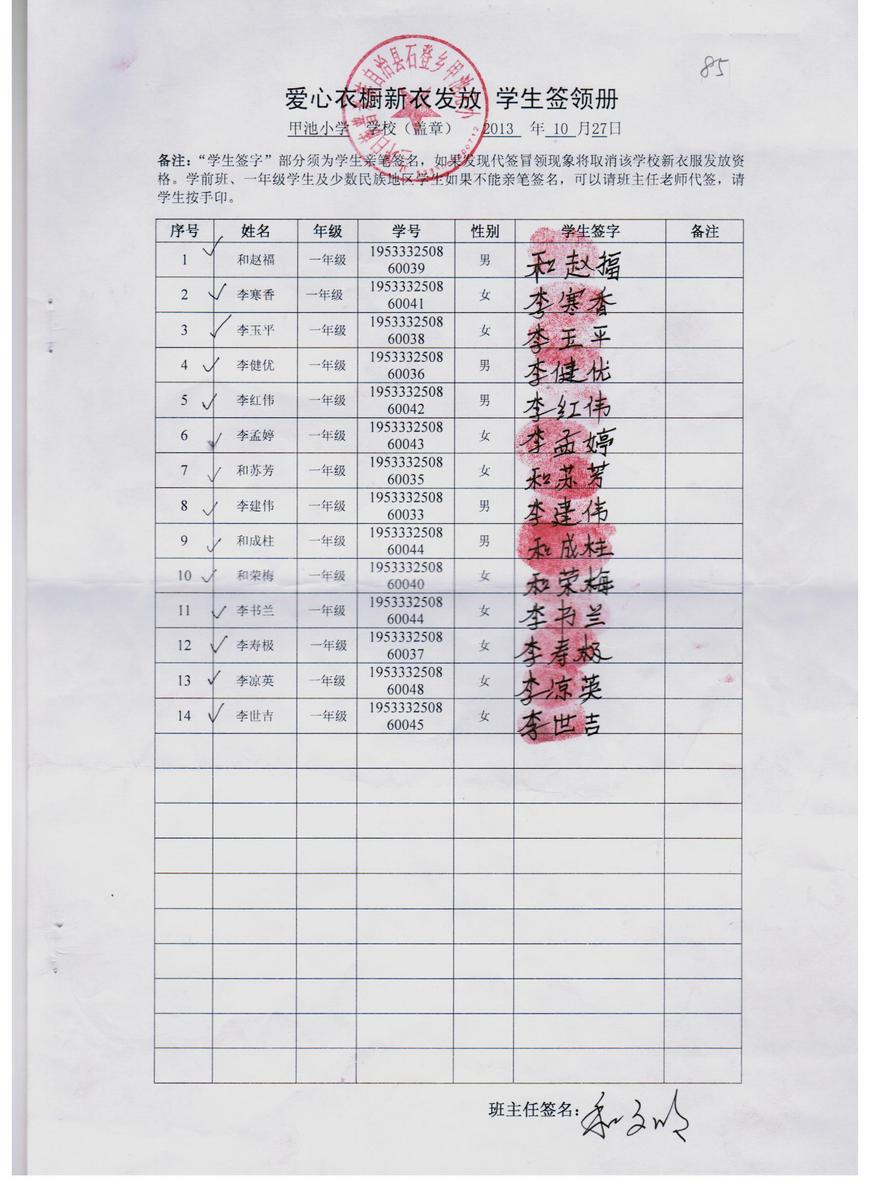 85
自治县石登乡甲池
爱心衣橱新衣发放 学生签领册
甲池小学 学校（盖章） 2013 年 10 月27日
备注：“学生签字”部分须为学生亲笔签名，如果发现代签冒领现象将取消该学校新衣服发放资
格。学前班、一年级学生及少数民族地区学生如果不能亲笔签名，可以请班主任老师代签，请
学生按手印。
序号 姓名 年级 学号 性别 学生签字 备注
1 和赵福 一年级 1953332508 60039 男 和赵福
2 李寒香 一年级 1953332508 60041 女 李寒香
3 李玉平 一年级 1953332508 60038 女 李玉平
4 李健优 一年级 1953332508 60036 男 李健优
5 李红伟 一年级 1953332508 60042 男 李红伟
6 李孟婷 一年级 1953332508 60043 女 李孟婷
7 和苏芳 一年级 1953332508 60035 女 和苏芳
8 李建伟 一年级 1953332508 60033 男 李建伟
9 和成柱 一年级 1953332508 60044 男 和成柱
10 和荣梅 一年级 1953332508 60040 女 和荣梅
11 李书兰 一年级 1953332508 60044 女 李书兰
12 李寿极 一年级 1953332508 60037 女 李寿极
13 李凉英 一年级 1953332508 60048 女 李凉英
14 李世吉 一年级 1953332508 60045 女 李世吉
班主任签名：和文明